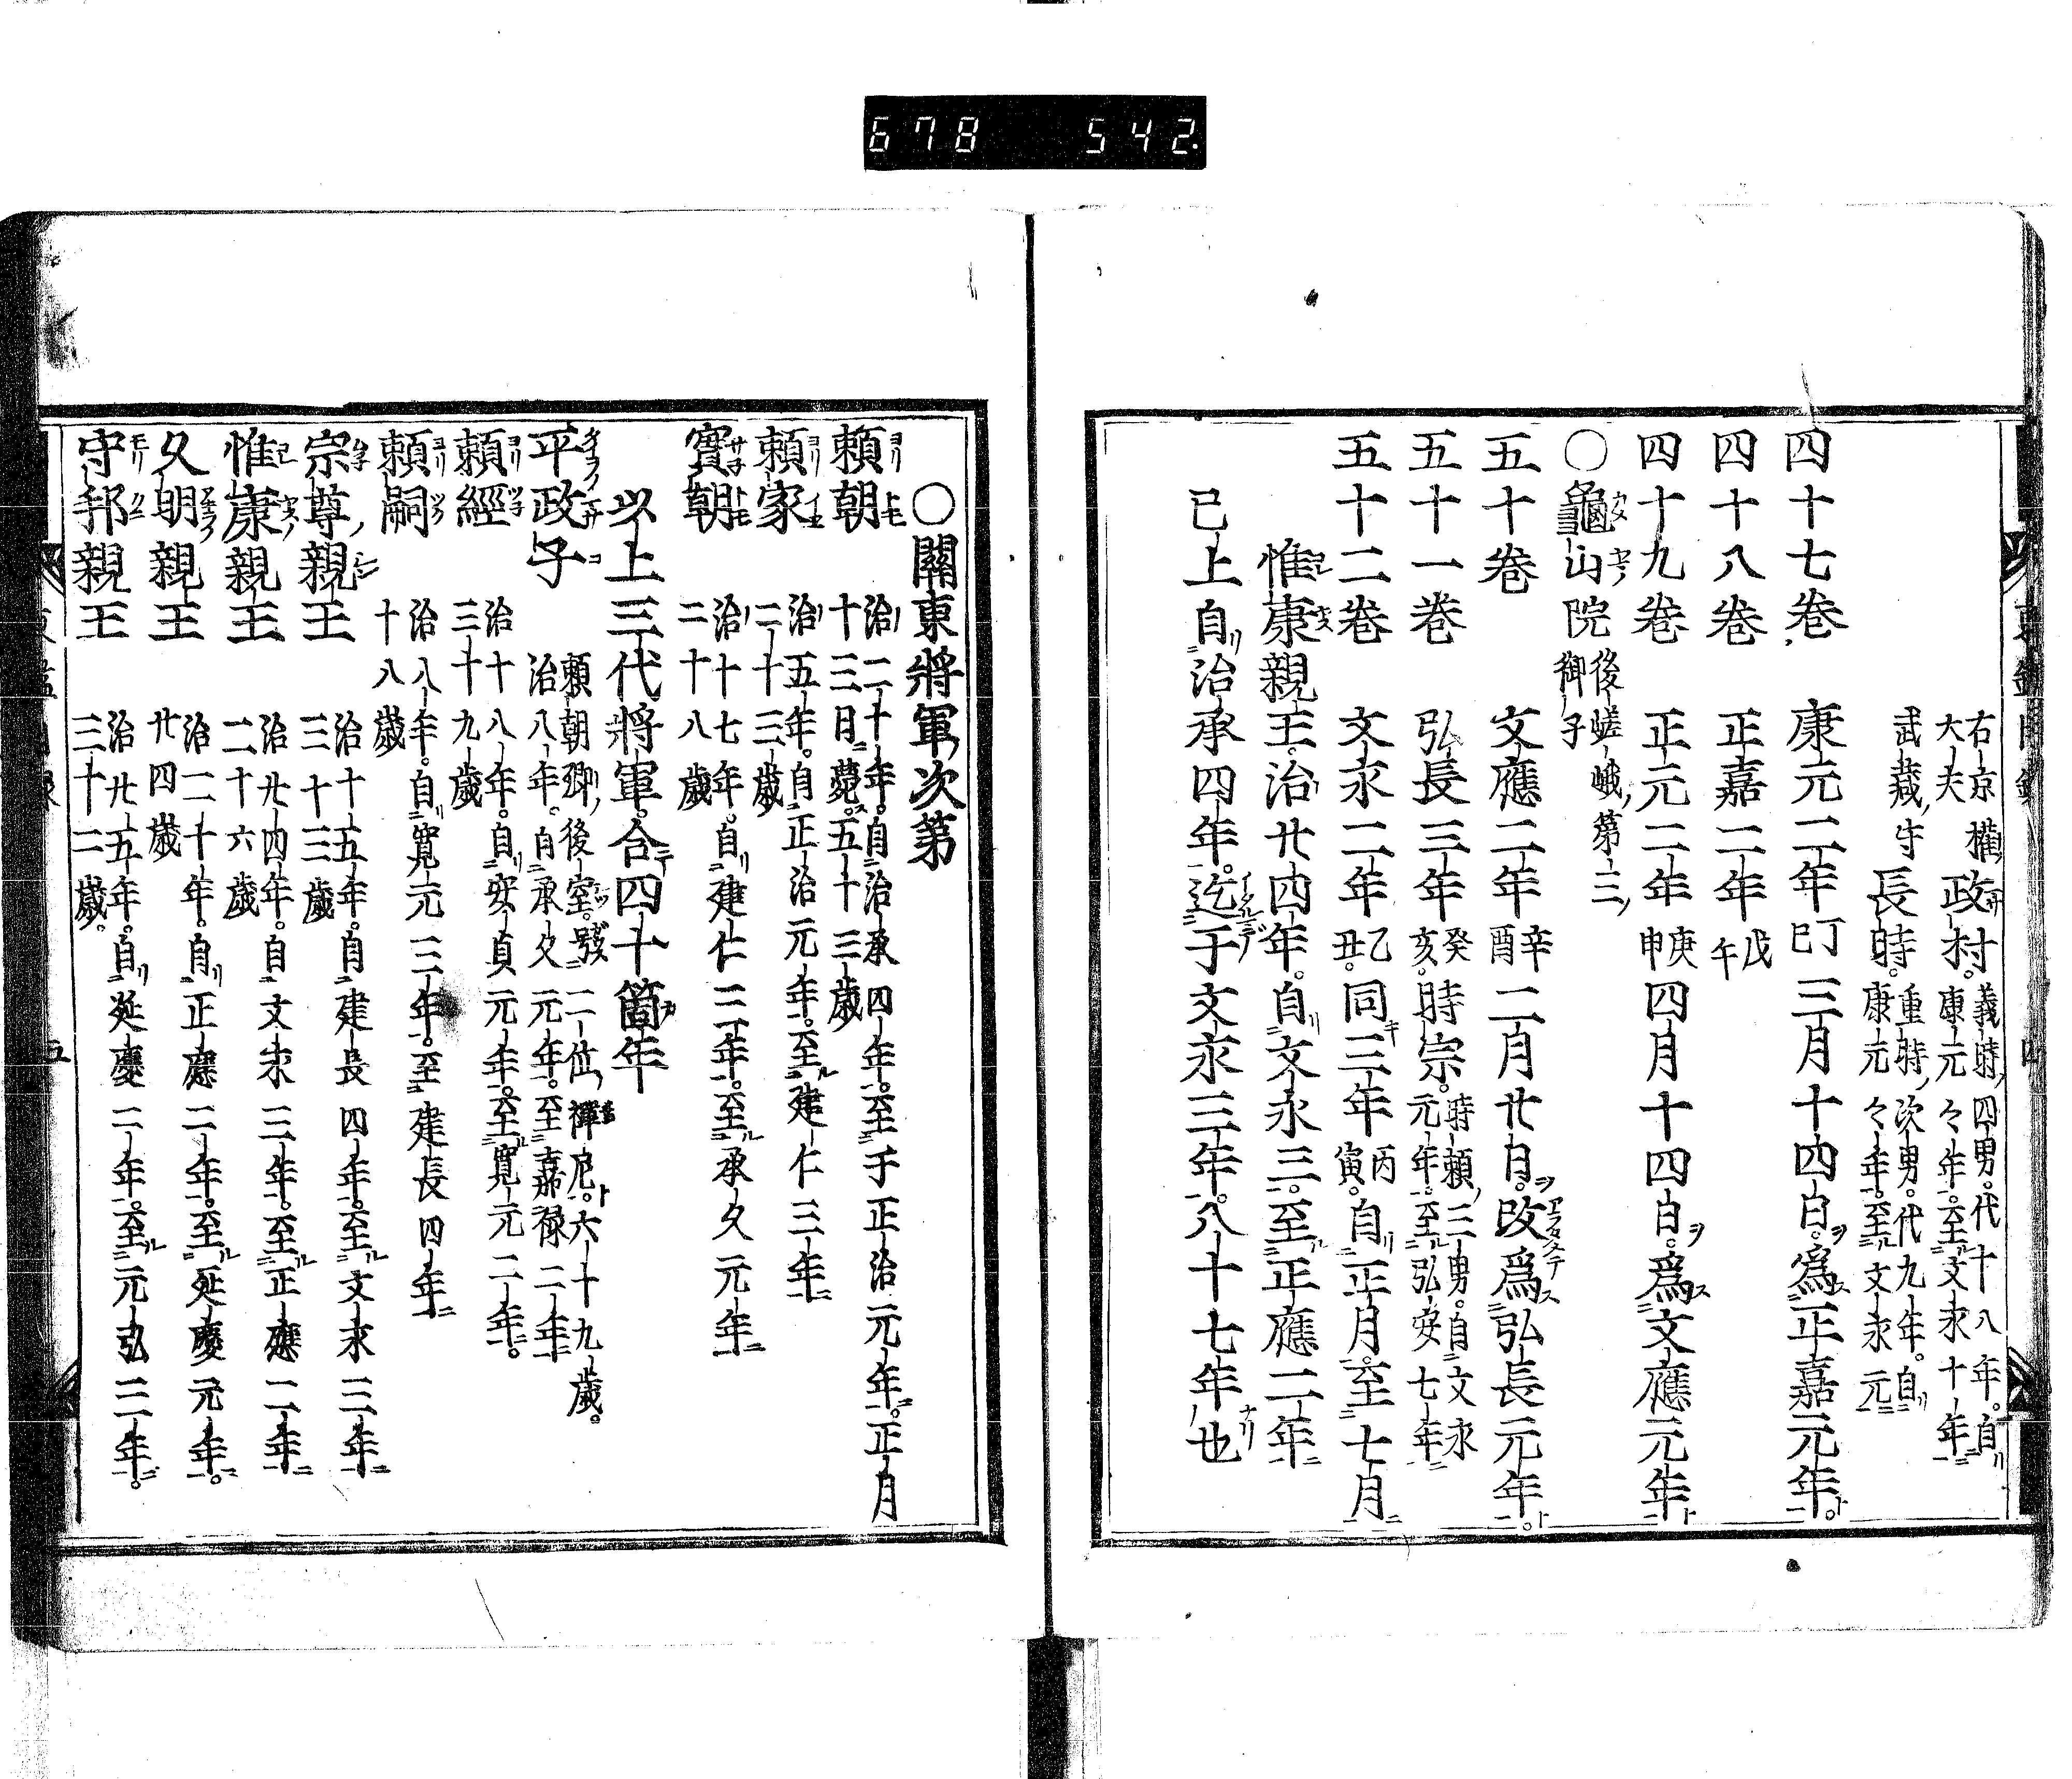 678 542.
右京權大夫 政村 義時四男。代十八年。自康元々年。至文永十年
武藏守 長時 重時次男。代九年。自康元々年。至文永元
四十七卷 康元二年丁巳 三月十四日。爲正嘉元年。
四十八卷 正嘉二年戊午
四十九卷 正元二年庚申 四月十四日。爲文應元年
〇龜山院 後嵯峨第三御子
五十卷 文應二年辛酉 二月廿日。改爲弘長元年。
五十一卷 弘長三年癸亥。時宗。時頼三男。自文永元年。至弘安七年
五十二卷 文永二年乙丑。同三年丙寅。自正月。至七月
惟康親王。治廿四年。自文永三。至正應二年
已上自治承四年。迄于文永三年。八十七年也
〇關東將軍次第
頼朝 治二十年。自治承四年。至于正治元年。正月十三日薨。五十三歳
頼家 治五年。自正治元年。至建仁三年。二十三歳
實朝 治十七年。自建仁三年。至承久元年。二十八歳
以上三代將軍。合四十箇年
平政子 頼朝卿後室。號二位禪尼。六十九歳。治八年。自承久元年。至嘉禄二年
頼經 治十八年。自安貞元年。至寛元二年。三十九歳
頼嗣 治八年。自寛元三年。至建長四年 十八歳
宗尊親王 治十五年。自建長四年。至文永三年 三十三歳
惟康親王 治廿四年。自文永三年。至正應二年 二十六歳
久明親王 治二十年。自正應二年。至延慶元年。廿四歳
守邦親王 治廿五年。自延慶二年。至元弘三年。三十二歳。
五